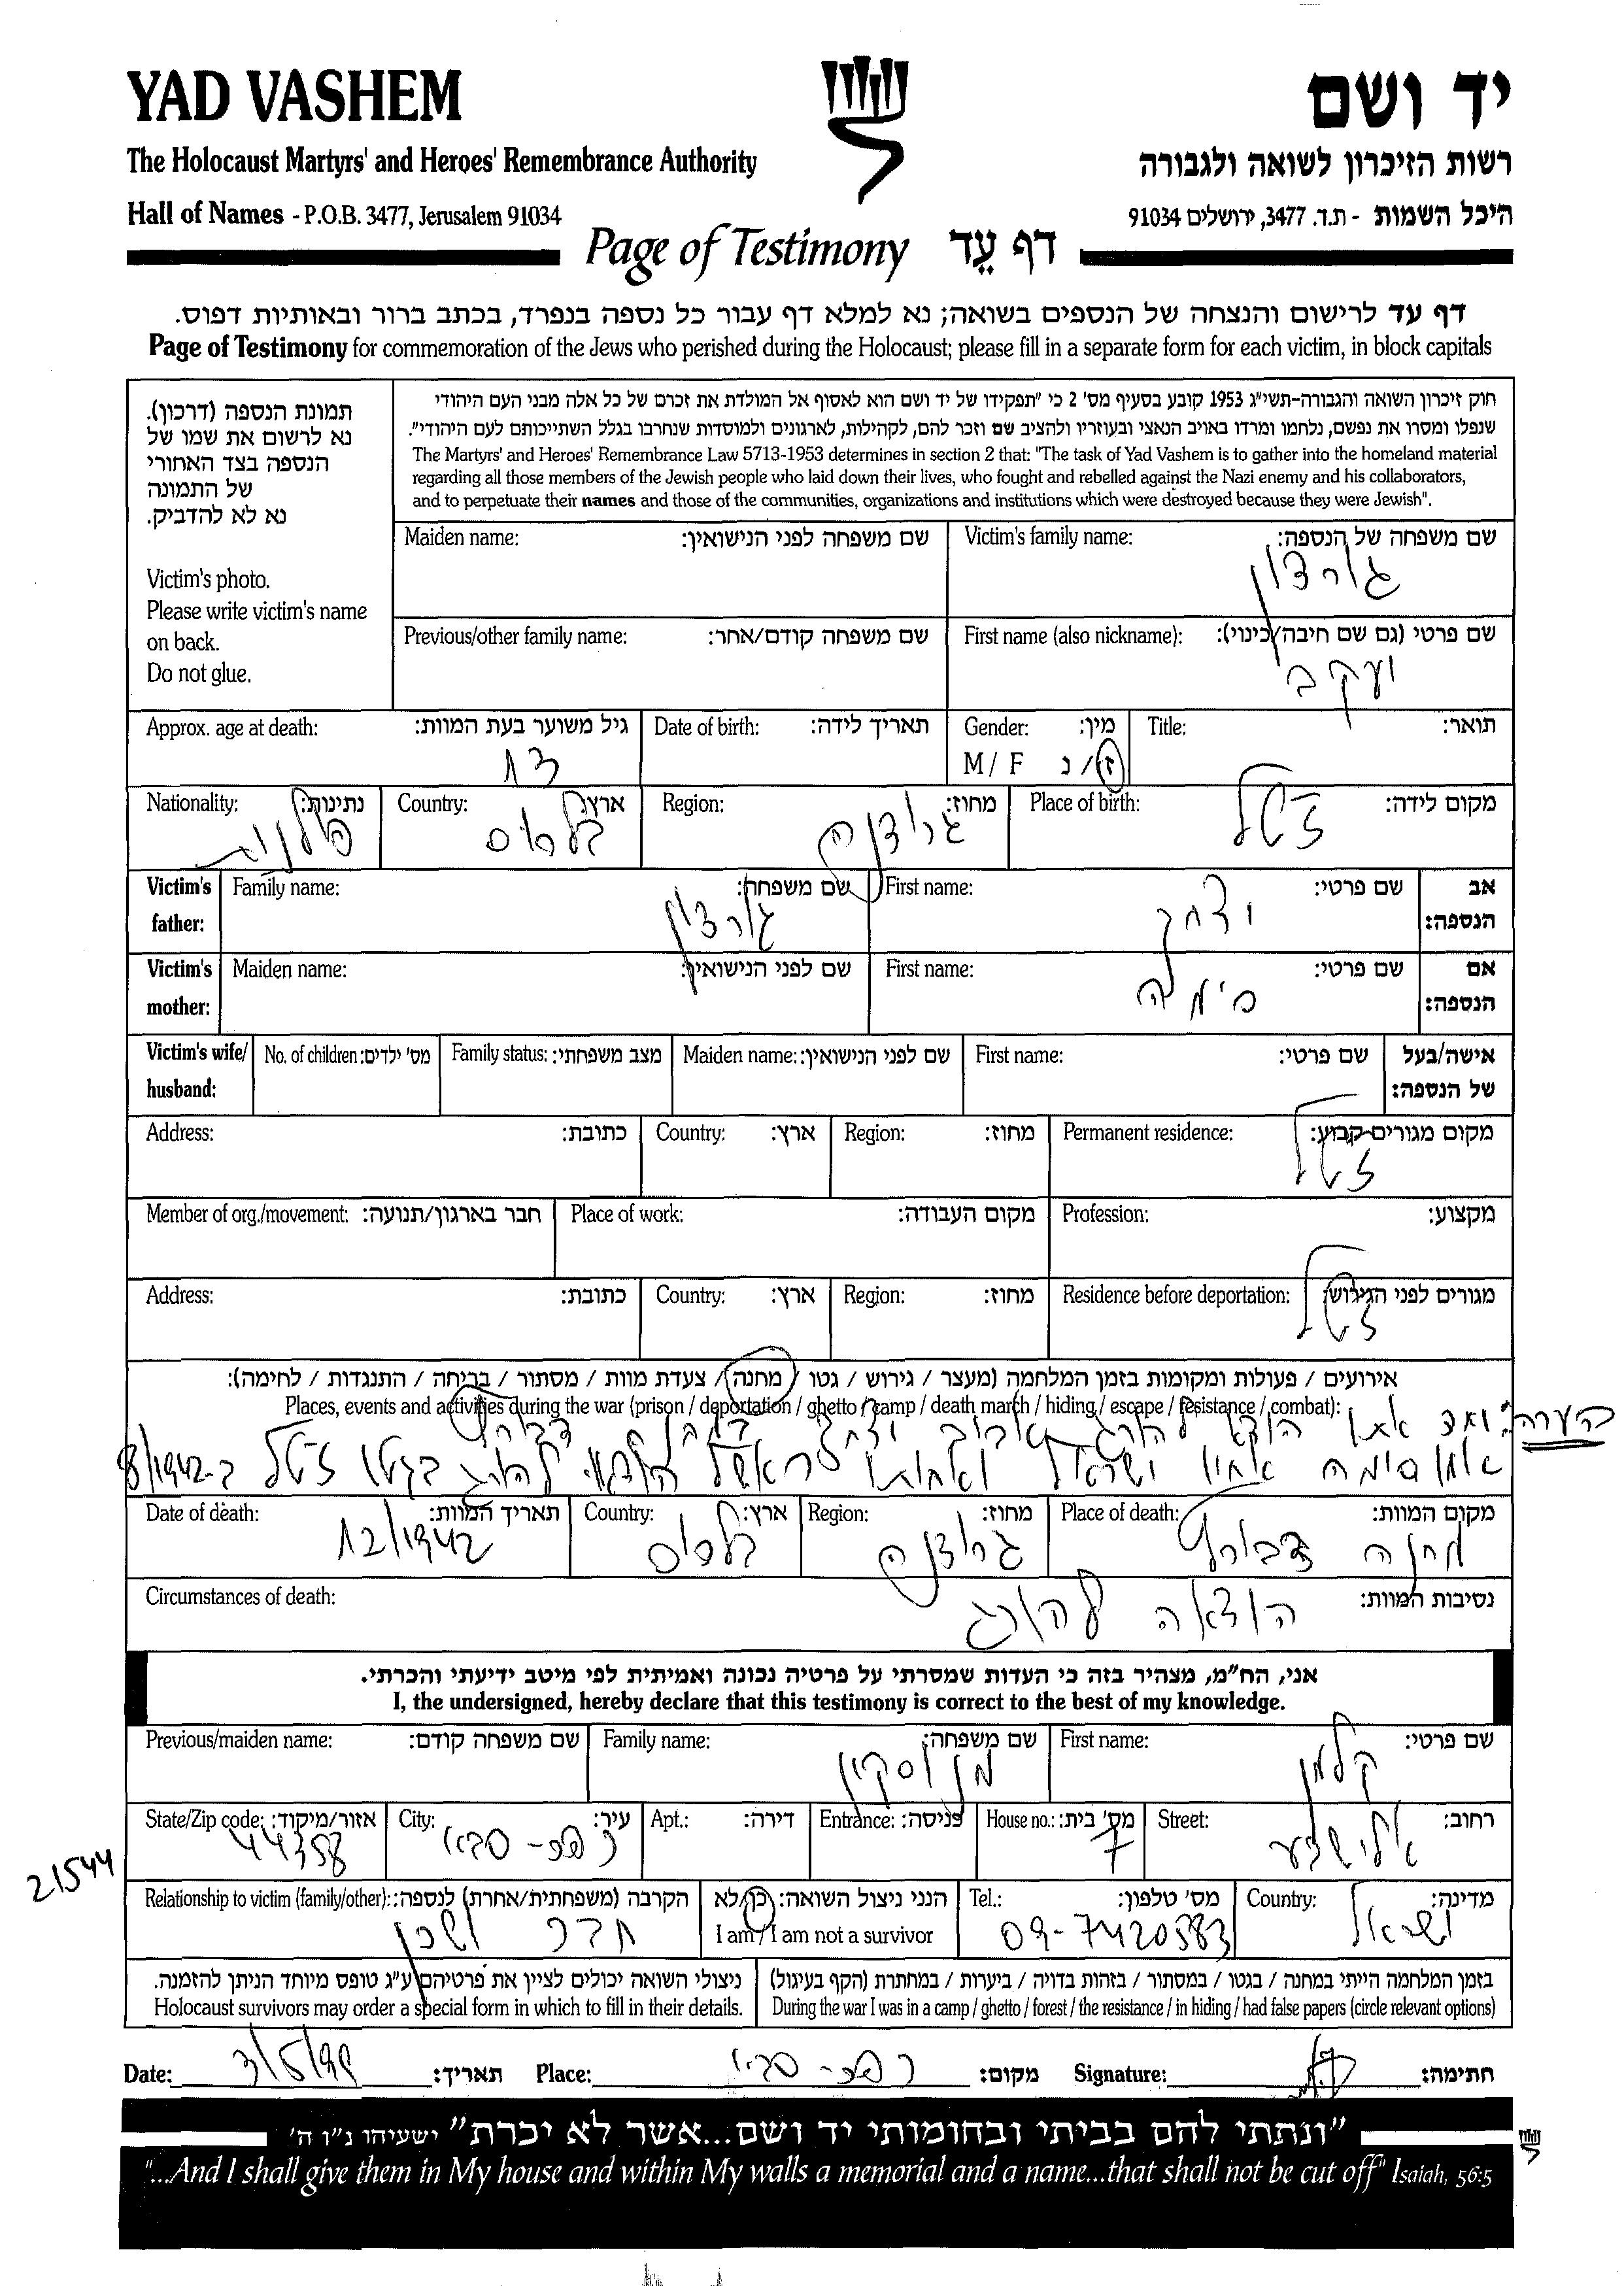 YAD VASHEM
יד ושם
The Holocaust Martyrs' and Heroes' Remembrance Authority
רשות הזיכרון לשואה ולגבורה
Hall of Names - P.O.B. 3477, Jerusalem 91034
היכל השמות - ת.ד. 3477, ירושלים 91034
Page of Testimony דף עֵד
דף עד לרישום והנצחה של הנספים בשואה; נא למלא דף עבור כל נספה בנפרד, בכתב ברור ובאותיות דפוס.
Page of Testimony for commemoration of the Jews who perished during the Holocaust; please fill in a separate form for each victim, in block capitals
תמונת הנספה (דרכון).
נא לרשום את שמו של
הנספה בצד האחורי
של התמונה
נא לא להדביק.
Victim's photo.
Please write victim's name
on back.
Do not glue.
חוק זיכרון השואה והגבורה-תשי"ג 1953 קובע בסעיף מס' 2 כי "תפקידו של יד ושם הוא לאסוף אל המולדת את זכרם של כל אלה מבני העם היהודי
שנפלו ומסרו את נפשם, נלחמו ומרדו באויב הנאצי ובעוזריו ולהציב שם וזכר להם, לקהילות, לארגונים ולמוסדות שנחרבו בגלל השתייכותם לעם היהודי".
The Martyrs' and Heroes' Remembrance Law 5713-1953 determines in section 2 that: "The task of Yad Vashem is to gather into the homeland material
regarding all those members of the Jewish people who laid down their lives, who fought and rebelled against the Nazi enemy and his collaborators,
and to perpetuate their names and those of the communities, organizations and institutions which were destroyed because they were Jewish".
שם משפחה של הנספה: Victim's family name:
גורדון
שם משפחה לפני הנישואין: Maiden name:
שם פרטי (גם שם חיבה/כינוי): First name (also nickname):
יעקב
שם משפחה קודם/אחר: Previous/other family name:
תואר: Title:
מין: Gender:
ז/נ M / F
תאריך לידה: Date of birth:
גיל משוער בעת המוות: Approx. age at death:
13
מקום לידה: Place of birth:
ז'טל
מחוז: Region:
גרודנה
ארץ: Country:
בלרוס
נתינות: Nationality:
פולנית
אב הנספה: Victim's father:
שם פרטי: First name:
יצחק
שם משפחה: Family name:
גורדון
אם הנספה: Victim's mother:
שם פרטי: First name:
סימה
שם לפני הנישואין: Maiden name:
אישה/בעל של הנספה: Victim's wife/ husband:
שם פרטי: First name:
שם לפני הנישואין: Maiden name:
מצב משפחתי: Family status:
מס' ילדים: No. of children:
מקום מגורים קבוע: Permanent residence:
ז'טל
מחוז: Region:
ארץ: Country:
כתובת: Address:
מקצוע: Profession:
מקום העבודה: Place of work:
חבר בארגון/תנועה: Member of org./movement:
מגורים לפני הגירוש: Residence before deportation:
ז'טל
מחוז: Region:
ארץ: Country:
כתובת: Address:
אירועים / פעולות ומקומות בזמן המלחמה (מעצר / גירוש / גטו / מחנה / צעדת מוות / מסתור / בריחה / התנגדות / לחימה):
Places, events and activities during the war (prison / deportation / ghetto / camp / death march / hiding / escape / resistance / combat):
הערה: הוצא להורג יצחק
אמו סימה אחיו ישראל ואחותו להורג בגטו ז'טל ב-8/1942
מקום המוות: Place of death:
מחנה דבורץ
מחוז: Region:
גרודנה
ארץ: Country:
בלרוס
תאריך המוות: Date of death:
12/1942
נסיבות המוות: Circumstances of death:
הוצאה להורג
אני, הח"מ, מצהיר בזה כי העדות שמסרתי על פרטיה נכונה ואמיתית לפי מיטב ידיעתי והכרתי.
I, the undersigned, hereby declare that this testimony is correct to the best of my knowledge.
שם פרטי: First name:
קלמן
שם משפחה: Family name:
מנוסקין
שם משפחה קודם: Previous/maiden name:
רחוב: Street:
מס' בית: House no.:
7
כניסה: Entrance:
דירה: Apt.:
עיר: City:
כפר-סבא
אזור/מיקוד: State/Zip code:
44358
21544
מדינה: Country:
ישראל
מס' טלפון: Tel.:
09-7420583
הנני ניצול השואה: כן/לא
I am / I am not a survivor
הקרבה (משפחתית/אחרת) לנספה: Relationship to victim (family/other):
חבר ושכן
בזמן המלחמה הייתי במחנה / בגטו / במסתור / בזהות בדויה / ביערות / במחתרת (הקף בעיגול)
During the war I was in a camp / ghetto / forest / the resistance / in hiding / had false papers (circle relevant options)
ניצולי השואה יכולים לציין את פרטיהם ע"ג טופס מיוחד הניתן להזמנה.
Holocaust survivors may order a special form in which to fill in their details.
Date: 3/5/99 תאריך: Place: כפר-סבא מקום: Signature: חתימה:
"ונתתי להם בביתי ובחומותי יד ושם...אשר לא יכרת" ישעיהו נ"ו ה'
"...And I shall give them in My house and within My walls a memorial and a name...that shall not be cut off" Isaiah, 56:5